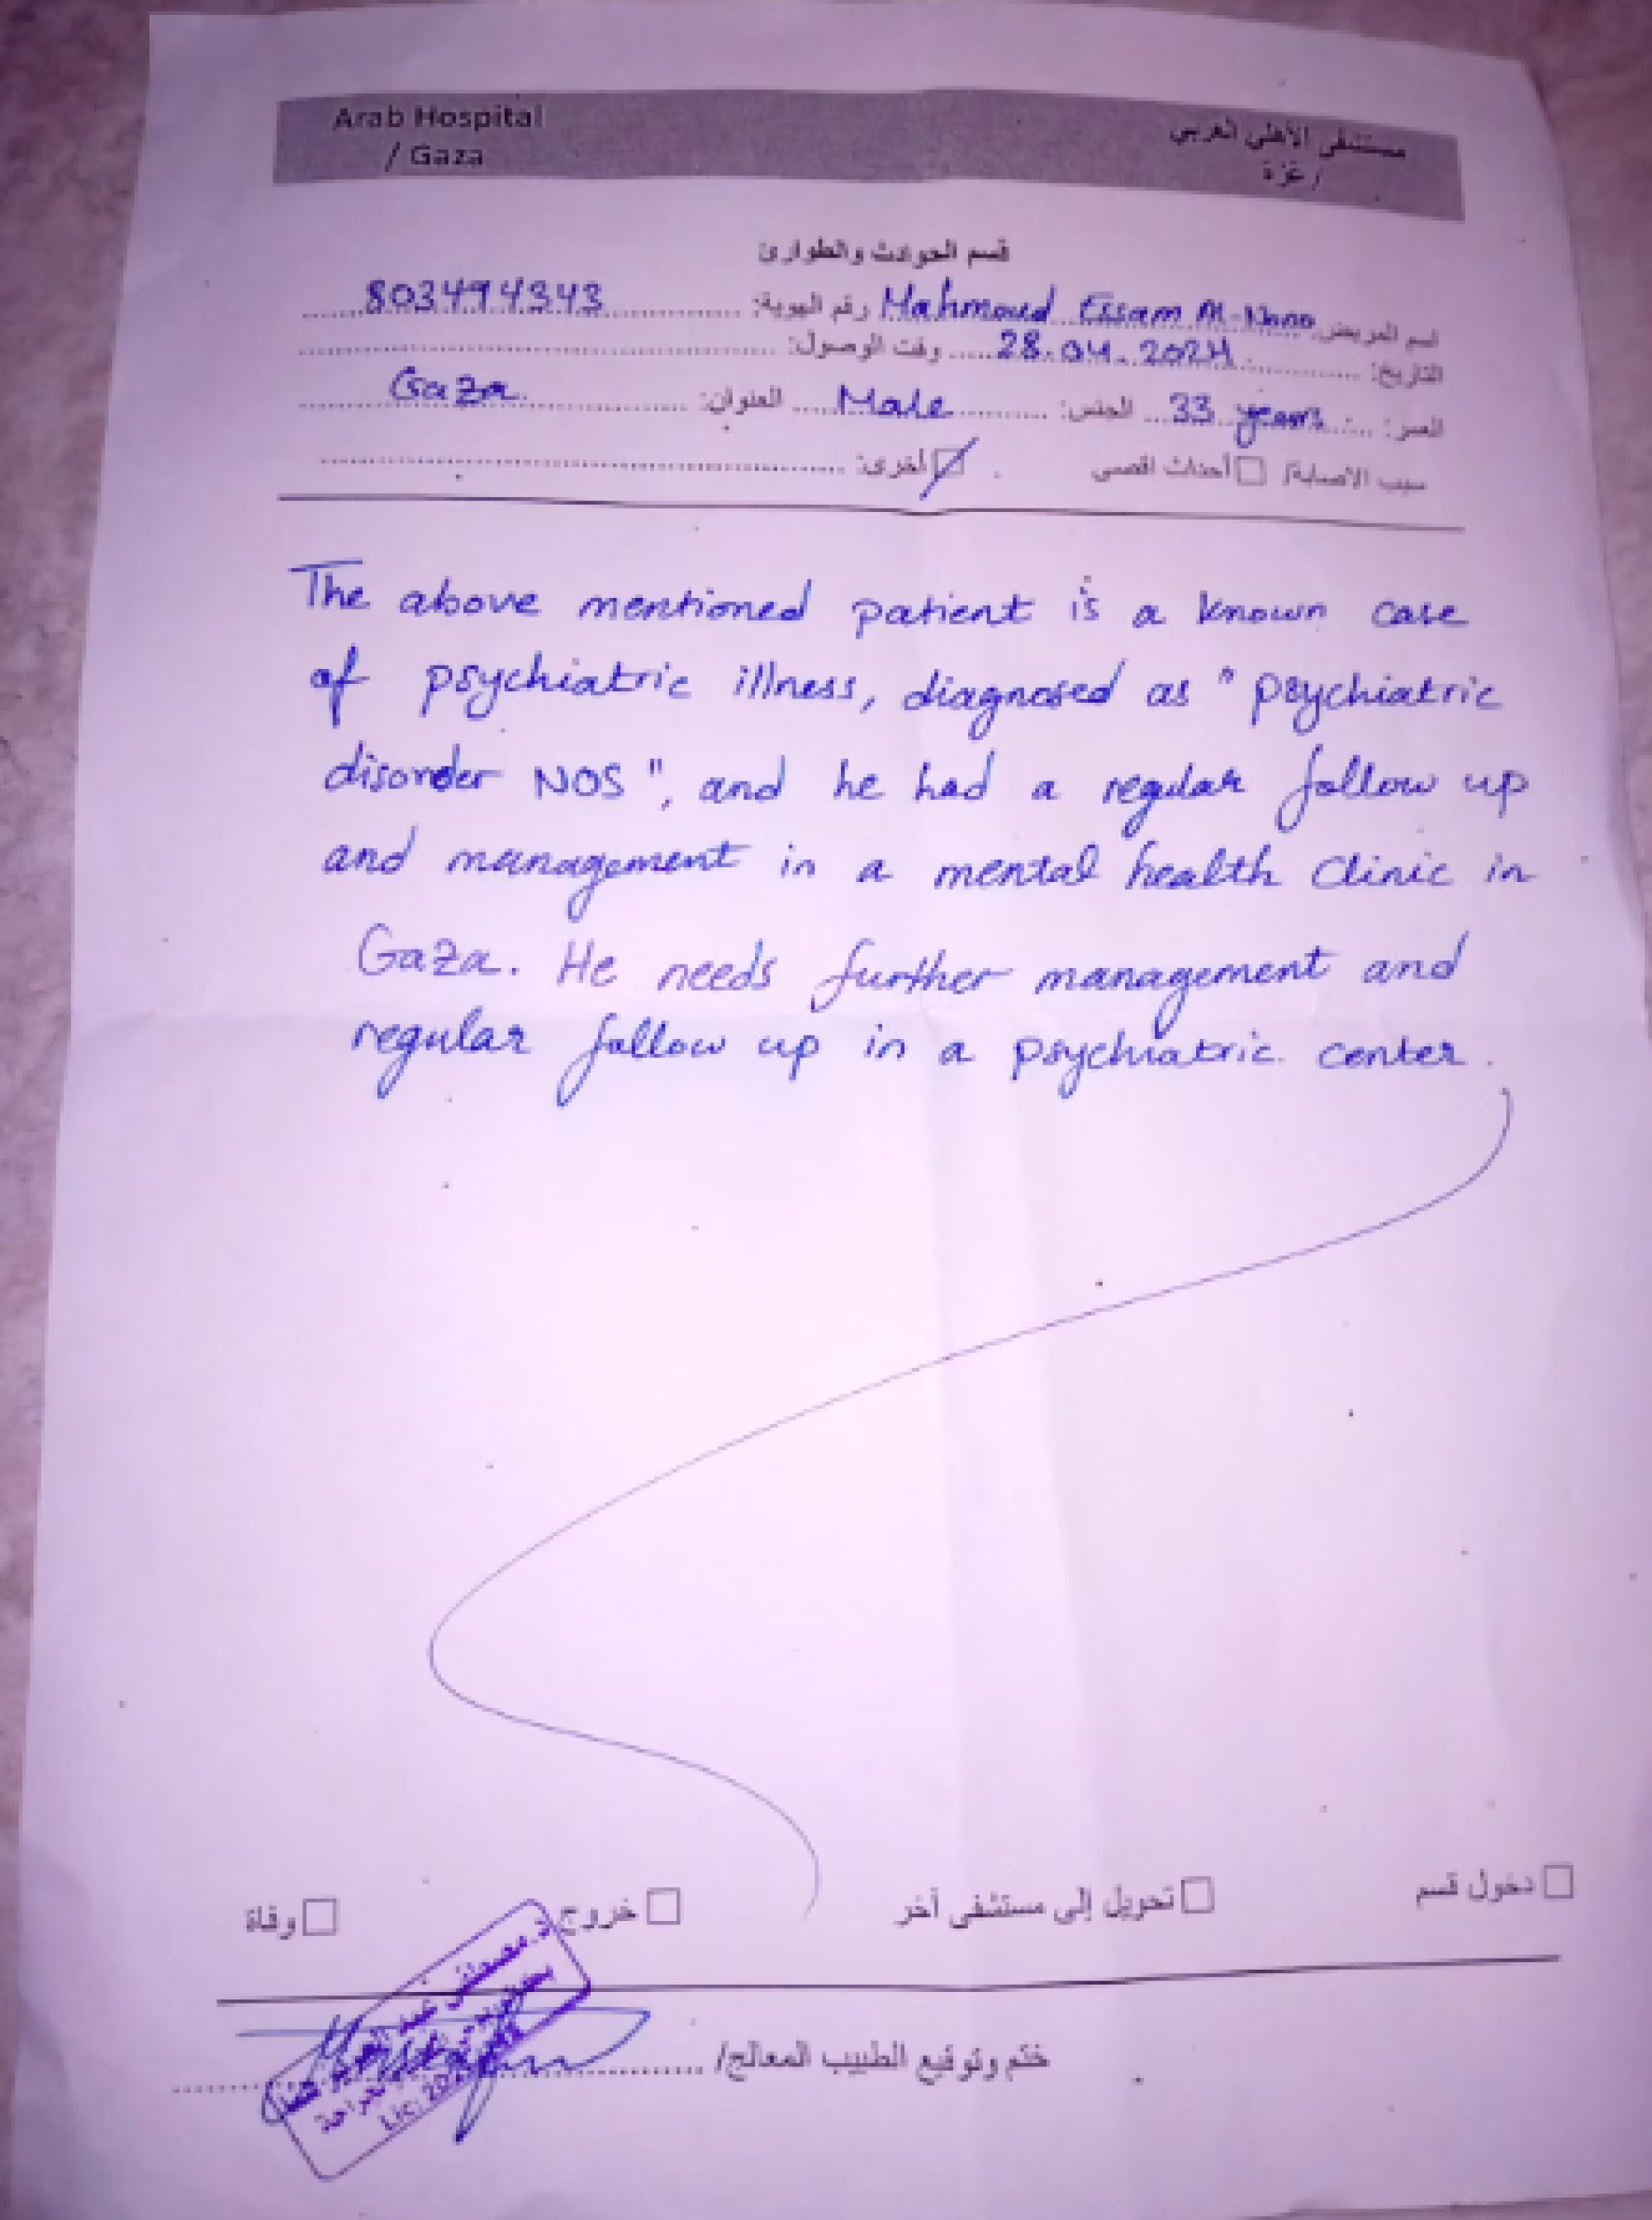 Arab Hospital
/ Gaza
مستشفى الأهلي العربي
/ غزة
قسم الحوادث والطوارئ
اسم المريض: Mahmoud Essam Al- رقم الهوية: 803494343
التاريخ: 28.04.2024 وقت الوصول:
العمر: 33 years الجنس: Male العنوان: Gaza
سبب الاصابة/ أحداث اقصى أخرى:
The above mentioned patient is a known case
of psychiatric illness, diagnosed as "psychiatric
disorder NOS", and he had a regular follow up
and management in a mental health clinic in
Gaza. He needs further management and
regular follow up in a psychiatric center.
دخول قسم تحويل إلى مستشفى آخر خروج وفاة
ختم وتوقيع الطبيب المعالج/
د. مصطفى
Lic: